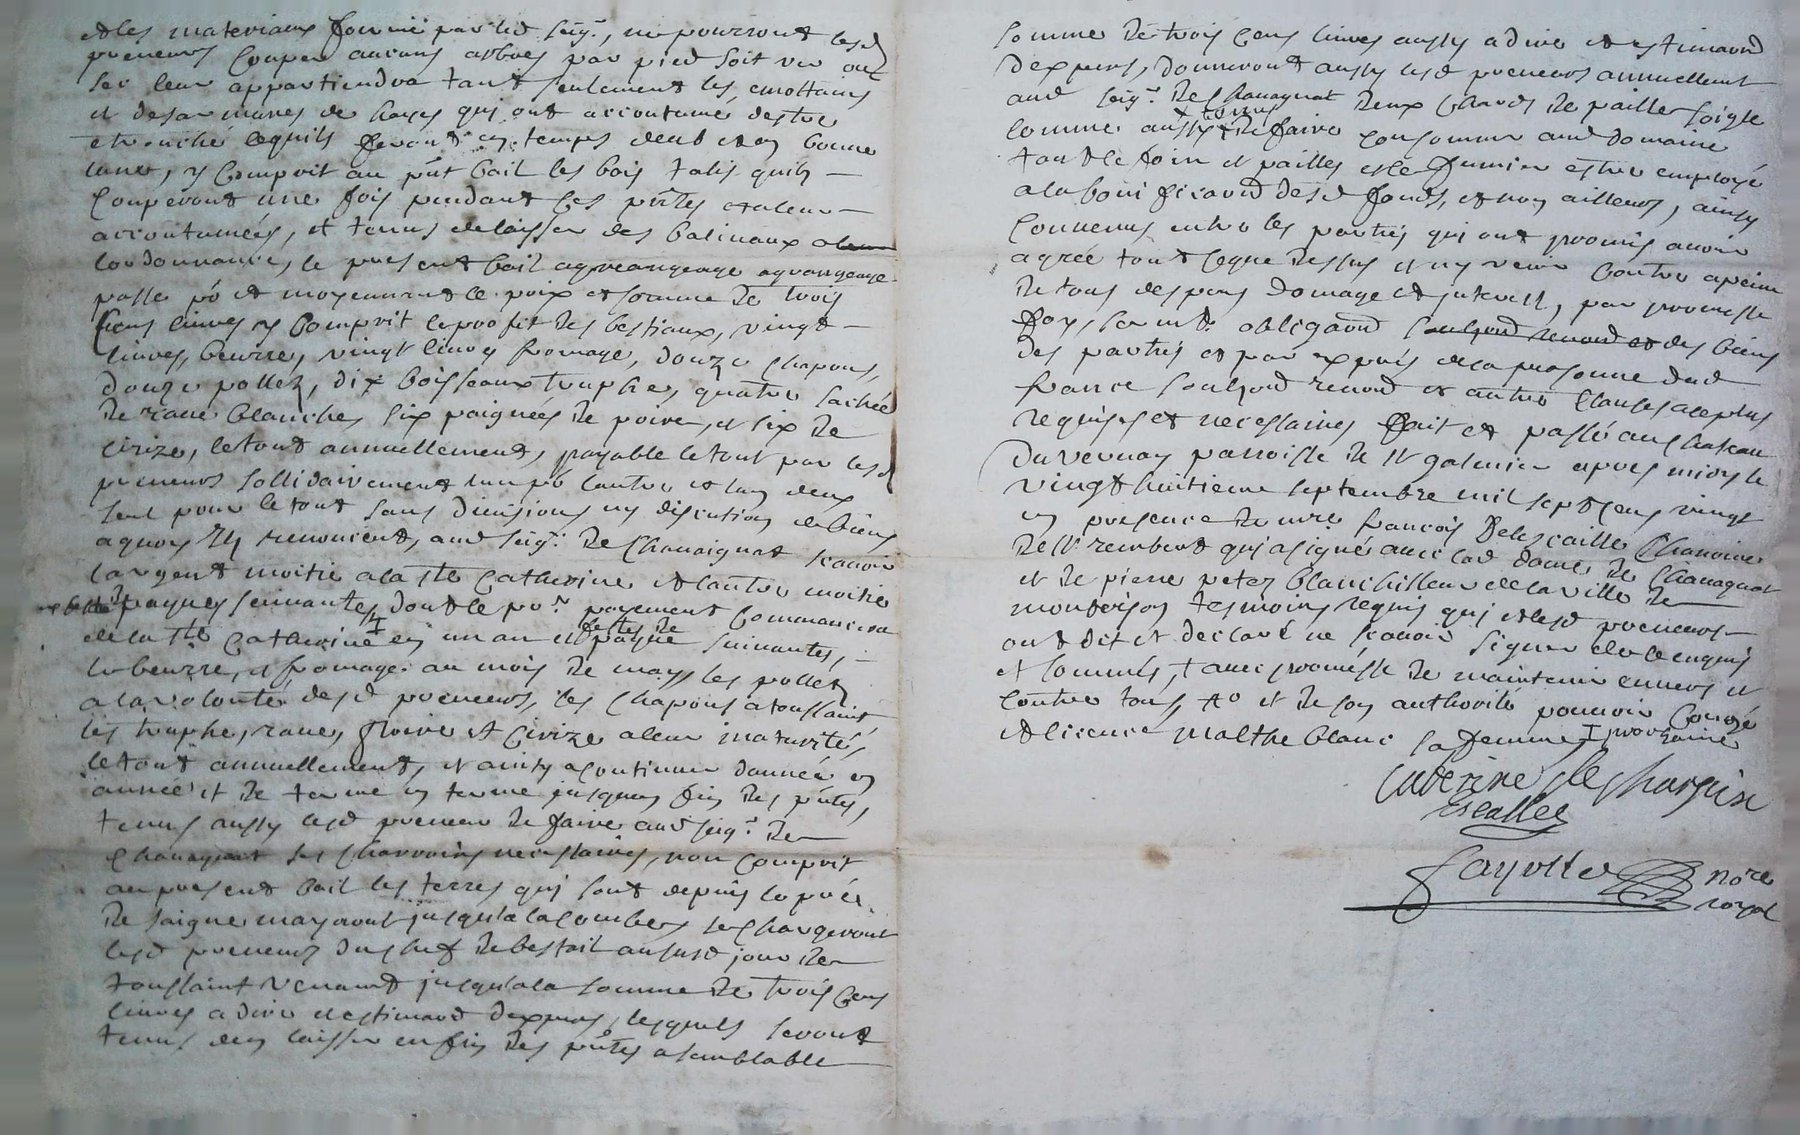 et les materiaux fournis par led seigr, ne pourront lesd
preneurs couper aucuns arbres par pied soit vert ou
sec leur appartiendra tant seulement les emottains
et desarmures de hayes qui ont accoutume destre
etronché lequils feront en temps deub et en bonne
lune, y comprit au pnt bail les bois talis quils
couperont une fois pendant les pntes et aleur
accoutumées, et tenus de laisser des balivaux
lordonnance, le present bail
passe pr et moyennant le prix et somme de trois
cens livres y comprit le profit des bestiaux, vingt
livres beurre, vingt livres fromage, douze chapons,
douze pollez, dix boisseaux truphe, quatre sachée
de rave blanches, six paignées de poire, et six de
cirize, le tout annuellement, payable le tout par lesd
preneurs sollidairement lun pr lautre et lun deux
seul pour le tout sans division ny discution de biens
a quoy ils renoncent, aud seigr de Chavaignat scavoir
largent moitié a la ste Catherine et lautre moitié
payes suivantes dont le pr payement commancera
de la ste Catherine en un an et paque suivantes,
festes de
le beurre, et fromage au mois de may, les pollez
a la volonté desd preneurs, les chapons a toussaint
les truphe, rave, poire et cirize a leur maturités,
le tout annuellement, et ainsy a continuer dannée en
année et de terme en terme jusques fin des pntes,
tenus aussy lesd preneur de faire aud seigr de
Chavagnat ses charroirs necessaires, non comprit
au present bail les terres qui sont depuis le pré
de saigne mayaout jusqua la combes se chargeront
lesd preneurs du chef de bestail aususd jour de
toussaint venant jusqua la somme de trois cens
livres a dire et estimaon dexpers, lesquels seront
tenus den laisser en fin des pntes a semblable
somme de trois cens livres aussy a dire et estimaon
dexpers, donneront aussy lesd preneurs annuellemt
aud seigr de Chavagnat deux chards de paille soigle
comme aussy tenus de faire consommer aud domaine
tout le foin et pailles et le fumier estre employé
a la bonificaon desd fonds, et non ailleurs, ainsy
convenus entre les parties qui ont promis avoir
agréé tout ceque dessus et ny venir contre a peine
de tous despens domage et interest, par promesse
foy, sermt obligaon des biens
des parties et par exprés de la personne dud
france soulzmon renon et autre clauses a ce plus
requises et necessaires fait et passé au chateau
du vernay parroisse de st galmier apres midy le
vingt huitieme septembre mil sept cens vingt
en presence de mre francois Delescaille chanoine
de st rembert qui a signé avec lad dame de Chavagnat
et de pierre petez blanchisseur de la ville de
montbrison tesmoins requis qui et lesd preneurs
ont dit et declaré ne scavoir signer de ce enquis
et sommés, avec promesse de maintenir envers et
contre tous, et de son authorité pouvoir congé
et licence malthe blanc sa femme prochaine
Caterine de Charpin
Escalles
fayolle nore
royal